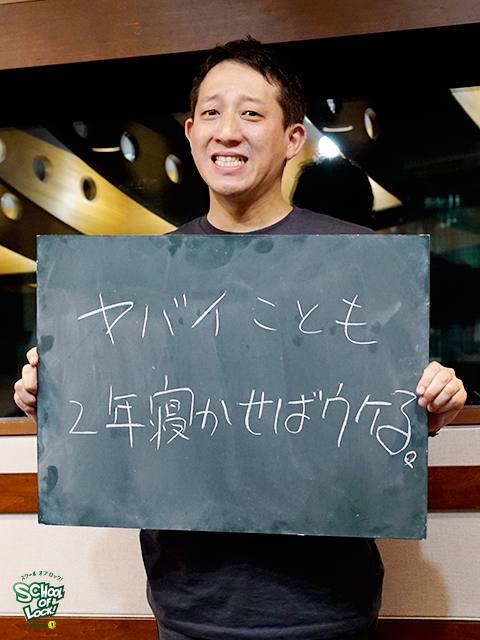 ヤバイことも
2年寝かせばウケる。
スクール オブ ロック!
SCHOOL
OF
LOCK!